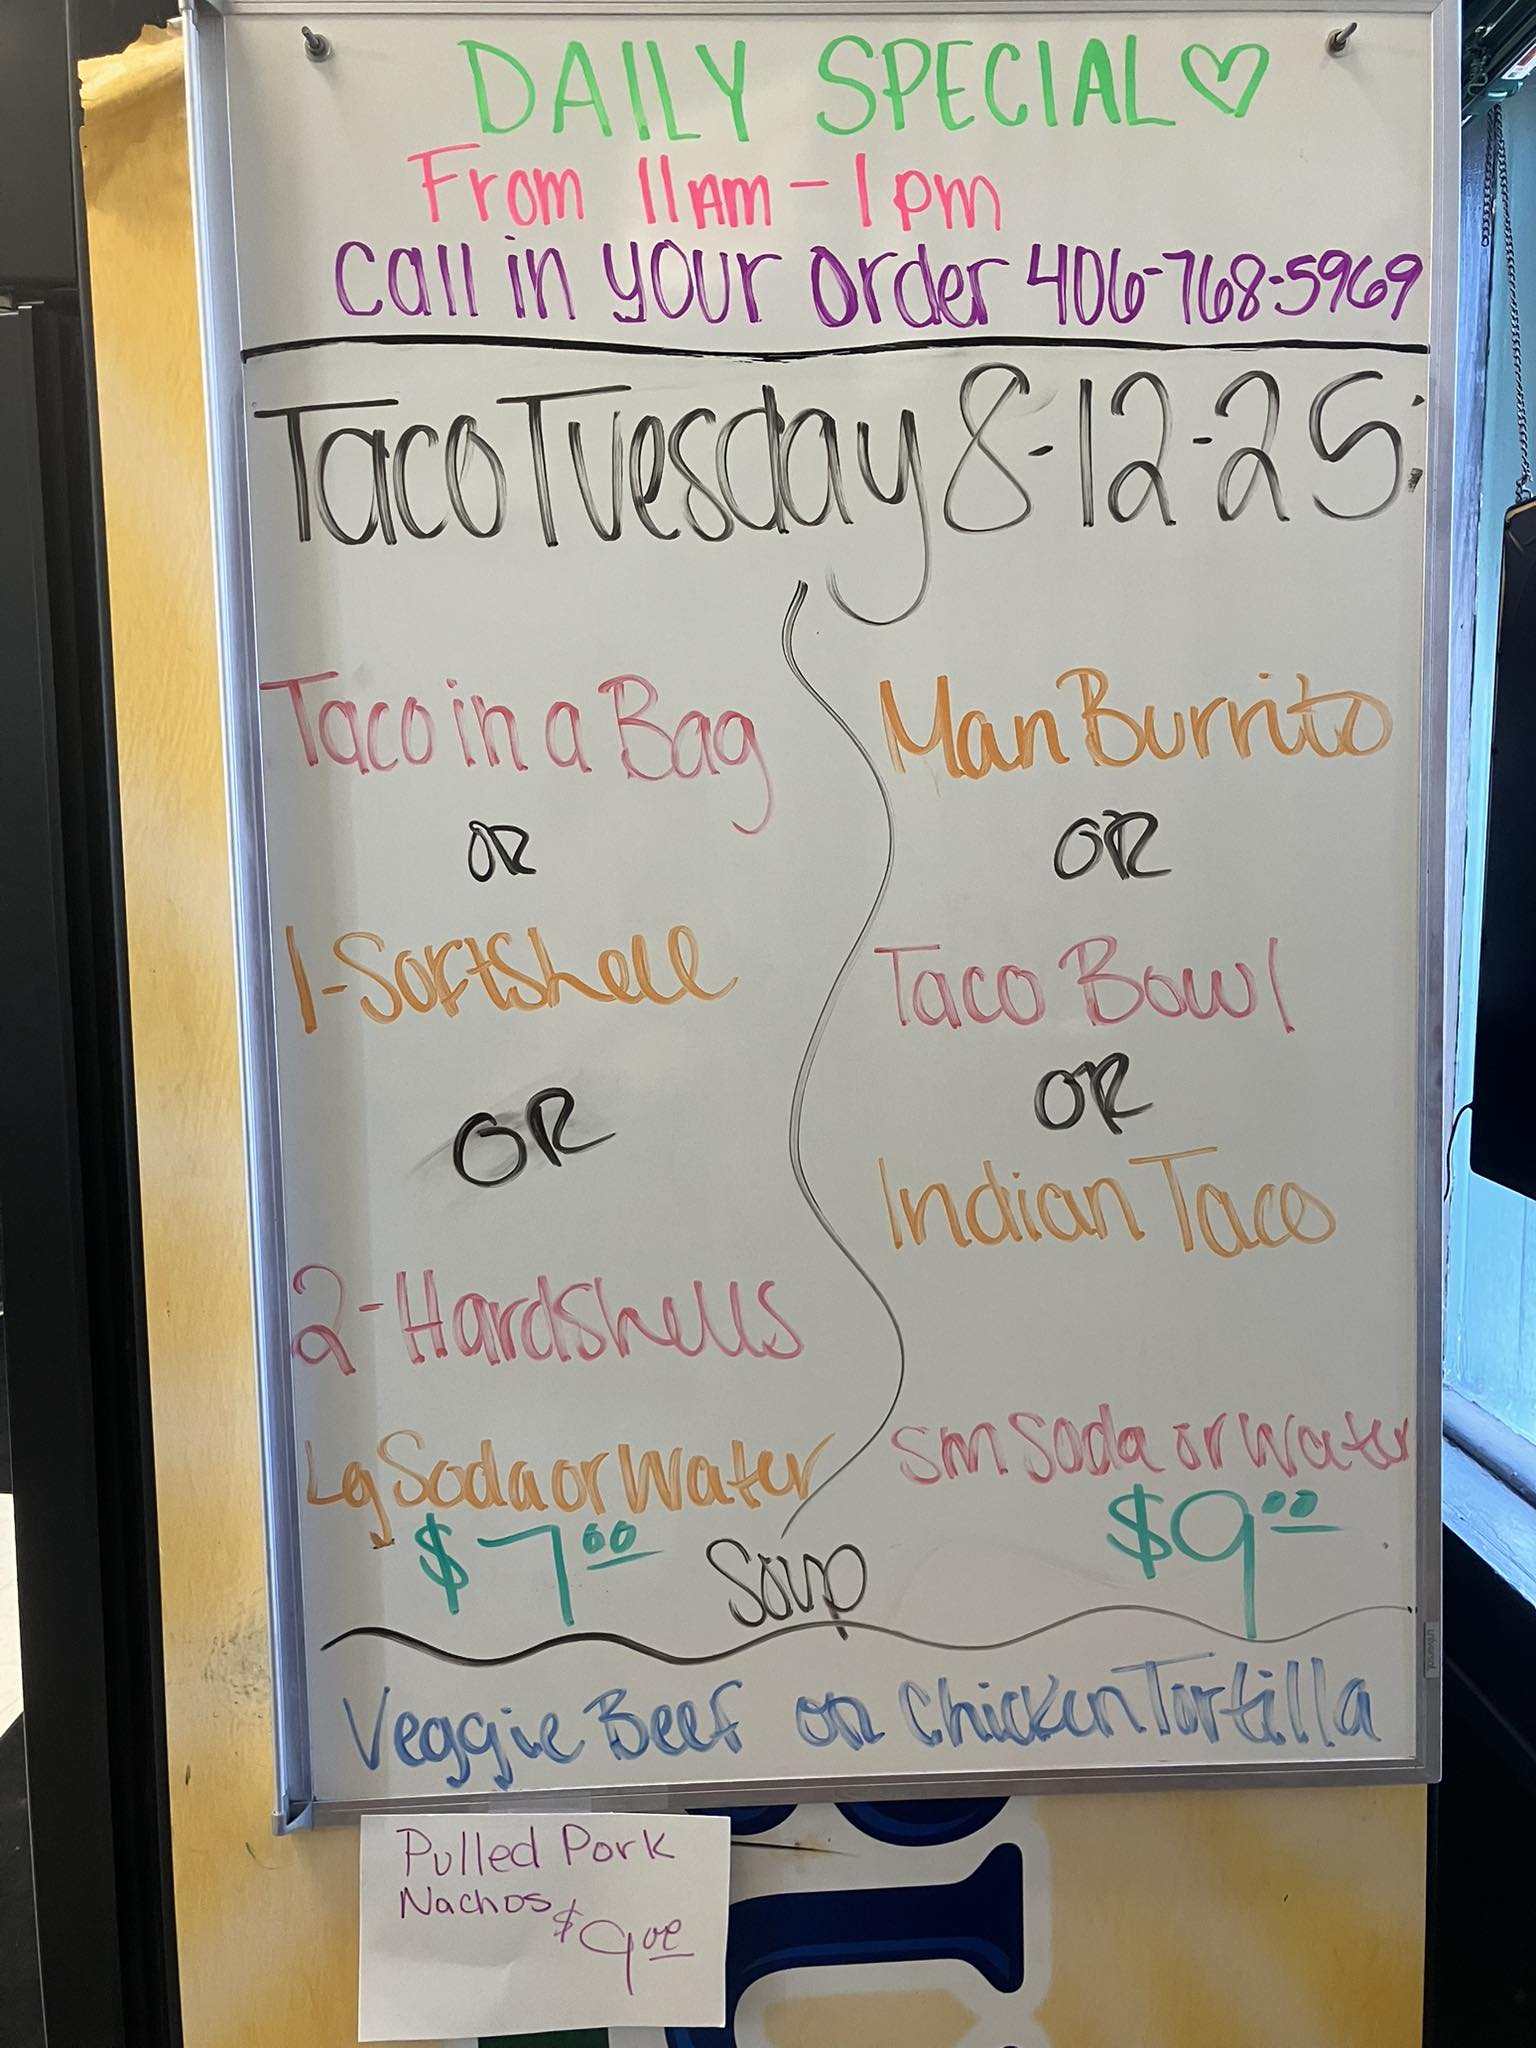 DAILY SPECIAL ♡
From 11am - 1pm
Call in your order 406-768-5969
Taco Tuesday 8-12-25
Taco in a Bag
OR
1-Softshell
OR
2-Hardshells
Lg Soda or Water
$7.00
Man Burrito
OR
Taco Bowl
OR
Indian Taco
Sm Soda or Water
$9.00
Soup
Veggie Beef or Chicken Tortilla
Pulled Pork
Nachos $9.00